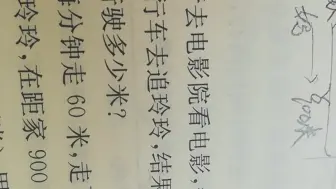 900米
去电影院看电影,
行车去追玲玲,结果
驶多少米?
每分钟走 60 米,走
玲玲,在距家 900